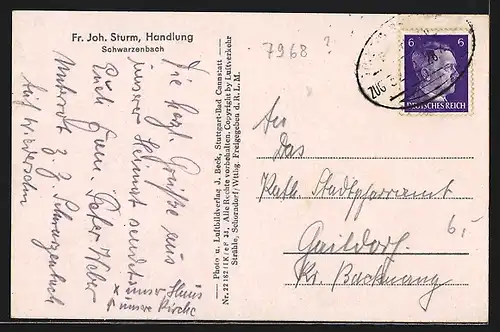 Fr. Joh. Sturm, Handlung
Schwarzenbach
Die herzl. Grüße aus
unserer Heimat sendet
Euch Fam. Pater Weber
Unterrot z. Z. Schwarzenbach
Auf Wiedersehn
x unser Haus
unsere Kirche
Photo u. Luftbildverlag J. Beck, Stuttgart-Bad Cannstatt
Alle Rechte vorbehalten. Copyright by Luftverkehr
Strähle, Schorndorf/Wttbg. Freigegeben d. R. L. M.
7968 ?
6 6
DEUTSCHES REICH
ZUG
An
Das
Kath. Stadtpfarramt
Gaildorf
Kr. Backnang
6,-